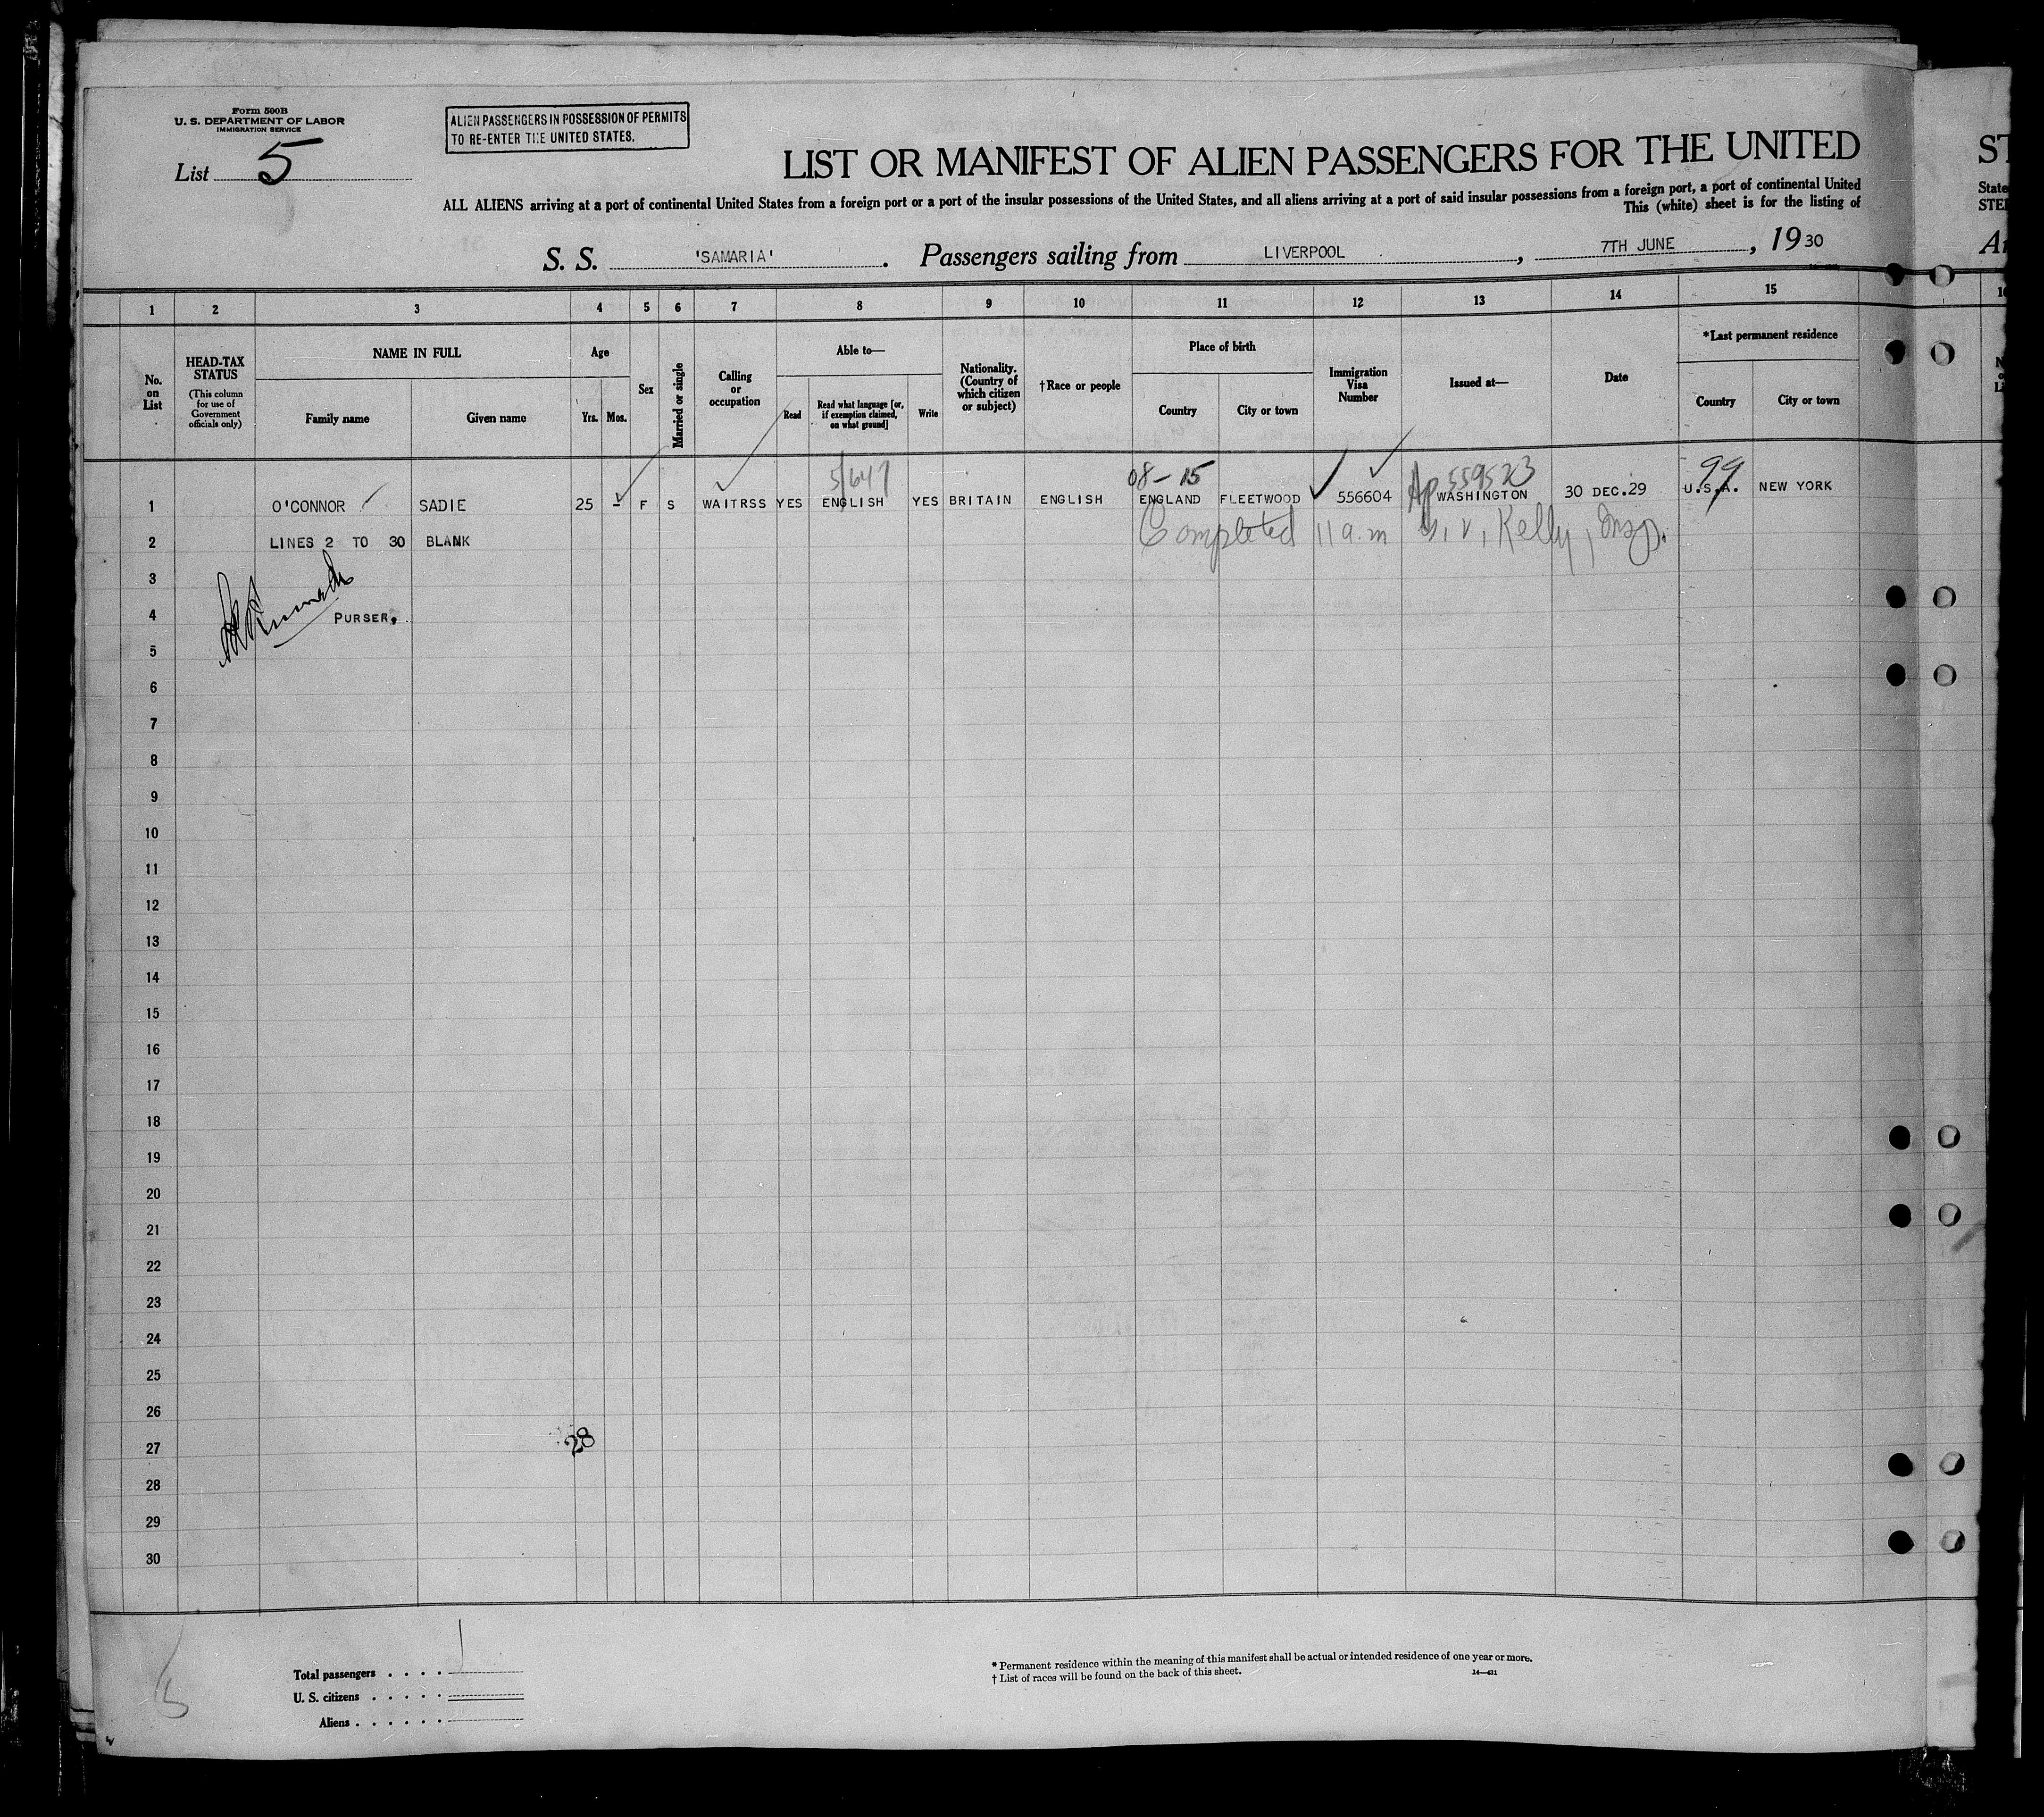 Form 500B
U. S. DEPARTMENT OF LABOR
IMMIGRATION SERVICE
List 5
ALIEN PASSENGERS IN POSSESSION OF PERMITS
TO RE-ENTER THE UNITED STATES.
LIST OR MANIFEST OF ALIEN PASSENGERS FOR THE UNITED
ST
ALL ALIENS arriving at a port of continental United States from a foreign port or a port of the insular possessions of the United States, and all aliens arriving at a port of said insular possessions from a foreign port, a port of continental United
State
This (white) sheet is for the listing of
STE
S. S. 'SAMARIA'. Passengers sailing from LIVERPOOL, 7TH JUNE, 1930
1 2 3 4 5 6 7 8 9 10 11 12 13 14 15
No. on List
HEAD-TAX STATUS
(This column for use of Government officials only)
NAME IN FULL
Family name
Given name
Age
Yrs. Mos.
Sex
Married or single
Calling or occupation
Able to—
Read
Read what language [or, if exemption claimed, on what ground]
Write
Nationality. (Country of which citizen or subject)
†Race or people
Place of birth
Country
City or town
Immigration Visa Number
Issued at—
Date
*Last permanent residence
Country
City or town
5/647 08-15 Ap 559523 99
1 O'CONNOR SADIE 25 - F S WAITRSS YES ENGLISH YES BRITAIN ENGLISH ENGLAND FLEETWOOD 556604 WASHINGTON 30 DEC.29 U.S.A. NEW YORK
2 LINES 2 TO 30 BLANK Completed 11 a.m Kelly, Insp.
3
4 PURSER.
5
6
7
8
9
10
11
12
13
14
15
16
17
18
19
20
21
22
23
24
25
26
27 28
28
29
30
Total passengers . . . . 1
U. S. citizens . . . . .
Aliens . . . . . .
* Permanent residence within the meaning of this manifest shall be actual or intended residence of one year or more.
† List of races will be found on the back of this sheet.
14—431